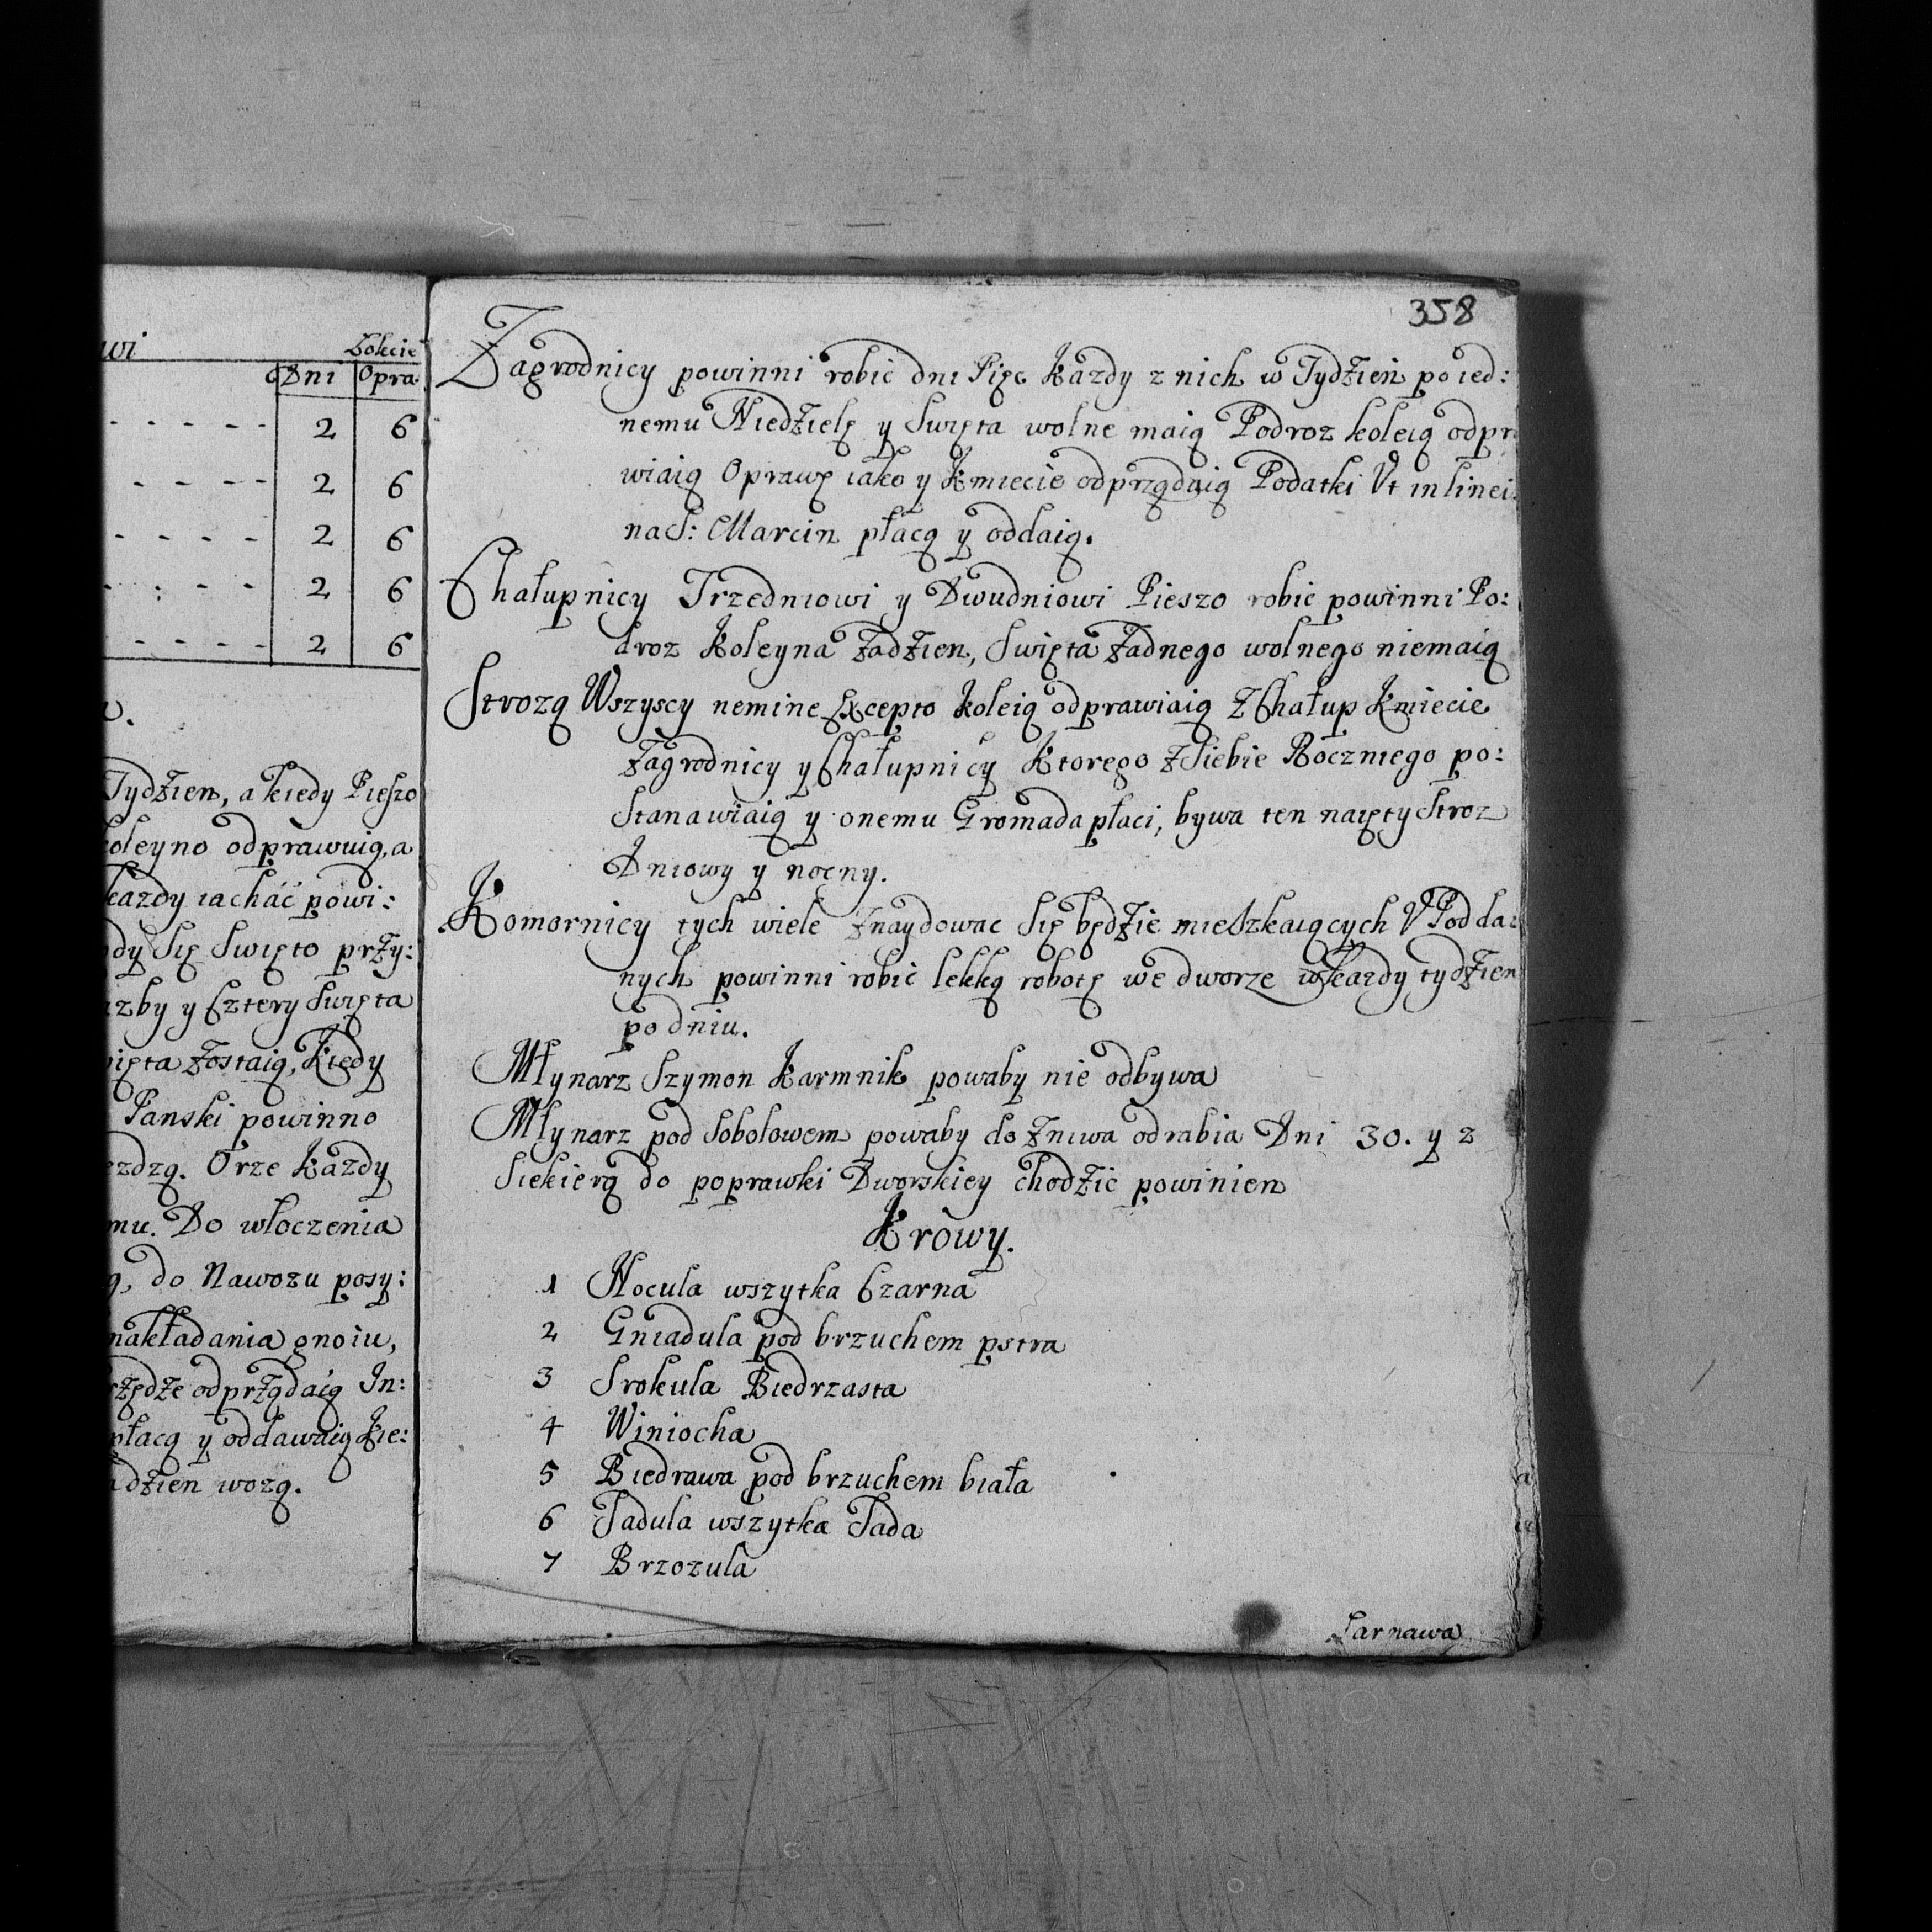 wi
Łokcie
Dni Opra
2 6
2 6
2 6
2 6
2 6
Tydzien, a kiedy Pieszo
koleyno odprawuią, a
każdy iachać powi:
Się Swięto przy:
y Cztery Swięta
zostaią, Kiedy
Panski powinno
Orze Każdy
Do włoczenia
do Nawozu posy:
nakładania gnoiu,
odprządaią In:
płacą y oddawaią Kie:
wozą.
358
Zagrodnicy powinni robić dni Pięc Każdy z nich w Tydzień po ied:
nemu Niedzielę y Swięta wolne maią Podroz koleią odpr
wiaią Oprawę iako y Kmiecie odprządaią Podatki Vt in linei
na S: Marcin płacą y oddaią.
Chałupnicy Trzedniowi y Dwudniowi Pieszo robic powinni Po:
droz Koleyna zadzien, Swięta żadnego wolnego niemaią
Strozą Wszyscy nemine Excepto koleią odprawiaią z Chałup Kmiecie
Zagrodnicy y Chałupnicy Ktorego z Siebie Rocznego po:
Stanawiaią y onemu Gromada płaci, bywa ten naięty Stroz
Dniowy y nocny.
Komornicy tych wiele znaydowac Się będzie mieszkaiących V Podda:
nych powinni robic lekką robotę we dworze w każdy tydzien
po dniu.
Młynarz Szymon Karmnik powaby nie odbywa
Młynarz pod Sobolowem powaby do żniwa odrabia Dni 30. y z
Siekierą do poprawki Dworskiey chodzic powinien
Krowy.
1 Nocula wszytka Czarna
2 Gniadula pod brzuchem pstra
3 Srokula Biedrzasta
4 Winiocha
5 Biedrawa pod brzuchem biała
6 Sadula wszytka Sada
7 Brzozula
Sarnawa